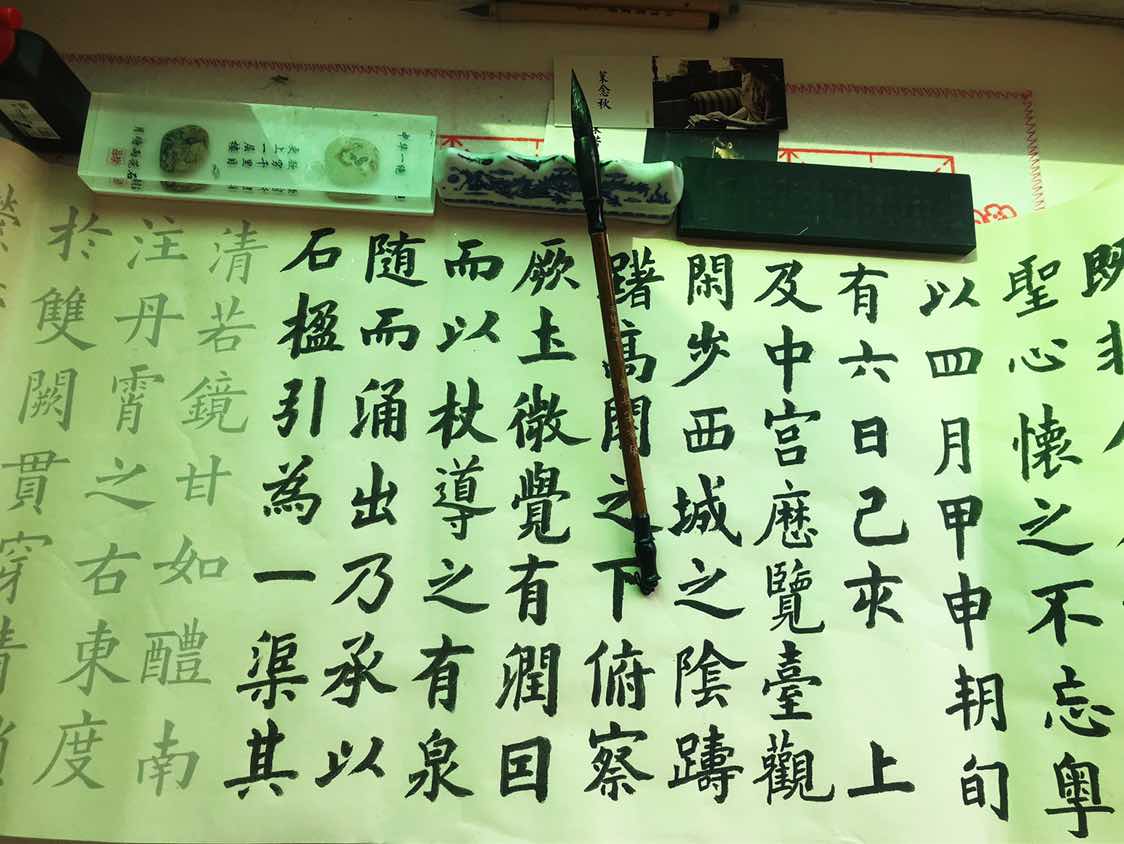 欲窮千里目
更上一層樓
既
聖心懷之不忘粵
以四月甲申朔旬
有六日己亥 上
及中宮歷覽臺觀
閑步西城之陰躊
躇高閣之下俯察
厥土微覺有潤囙
而以杖導之有泉
随而涌出乃承以
石楹引為一渠其
清若鏡甘如醴南
注丹霄之右東度
於雙闕貫穿青